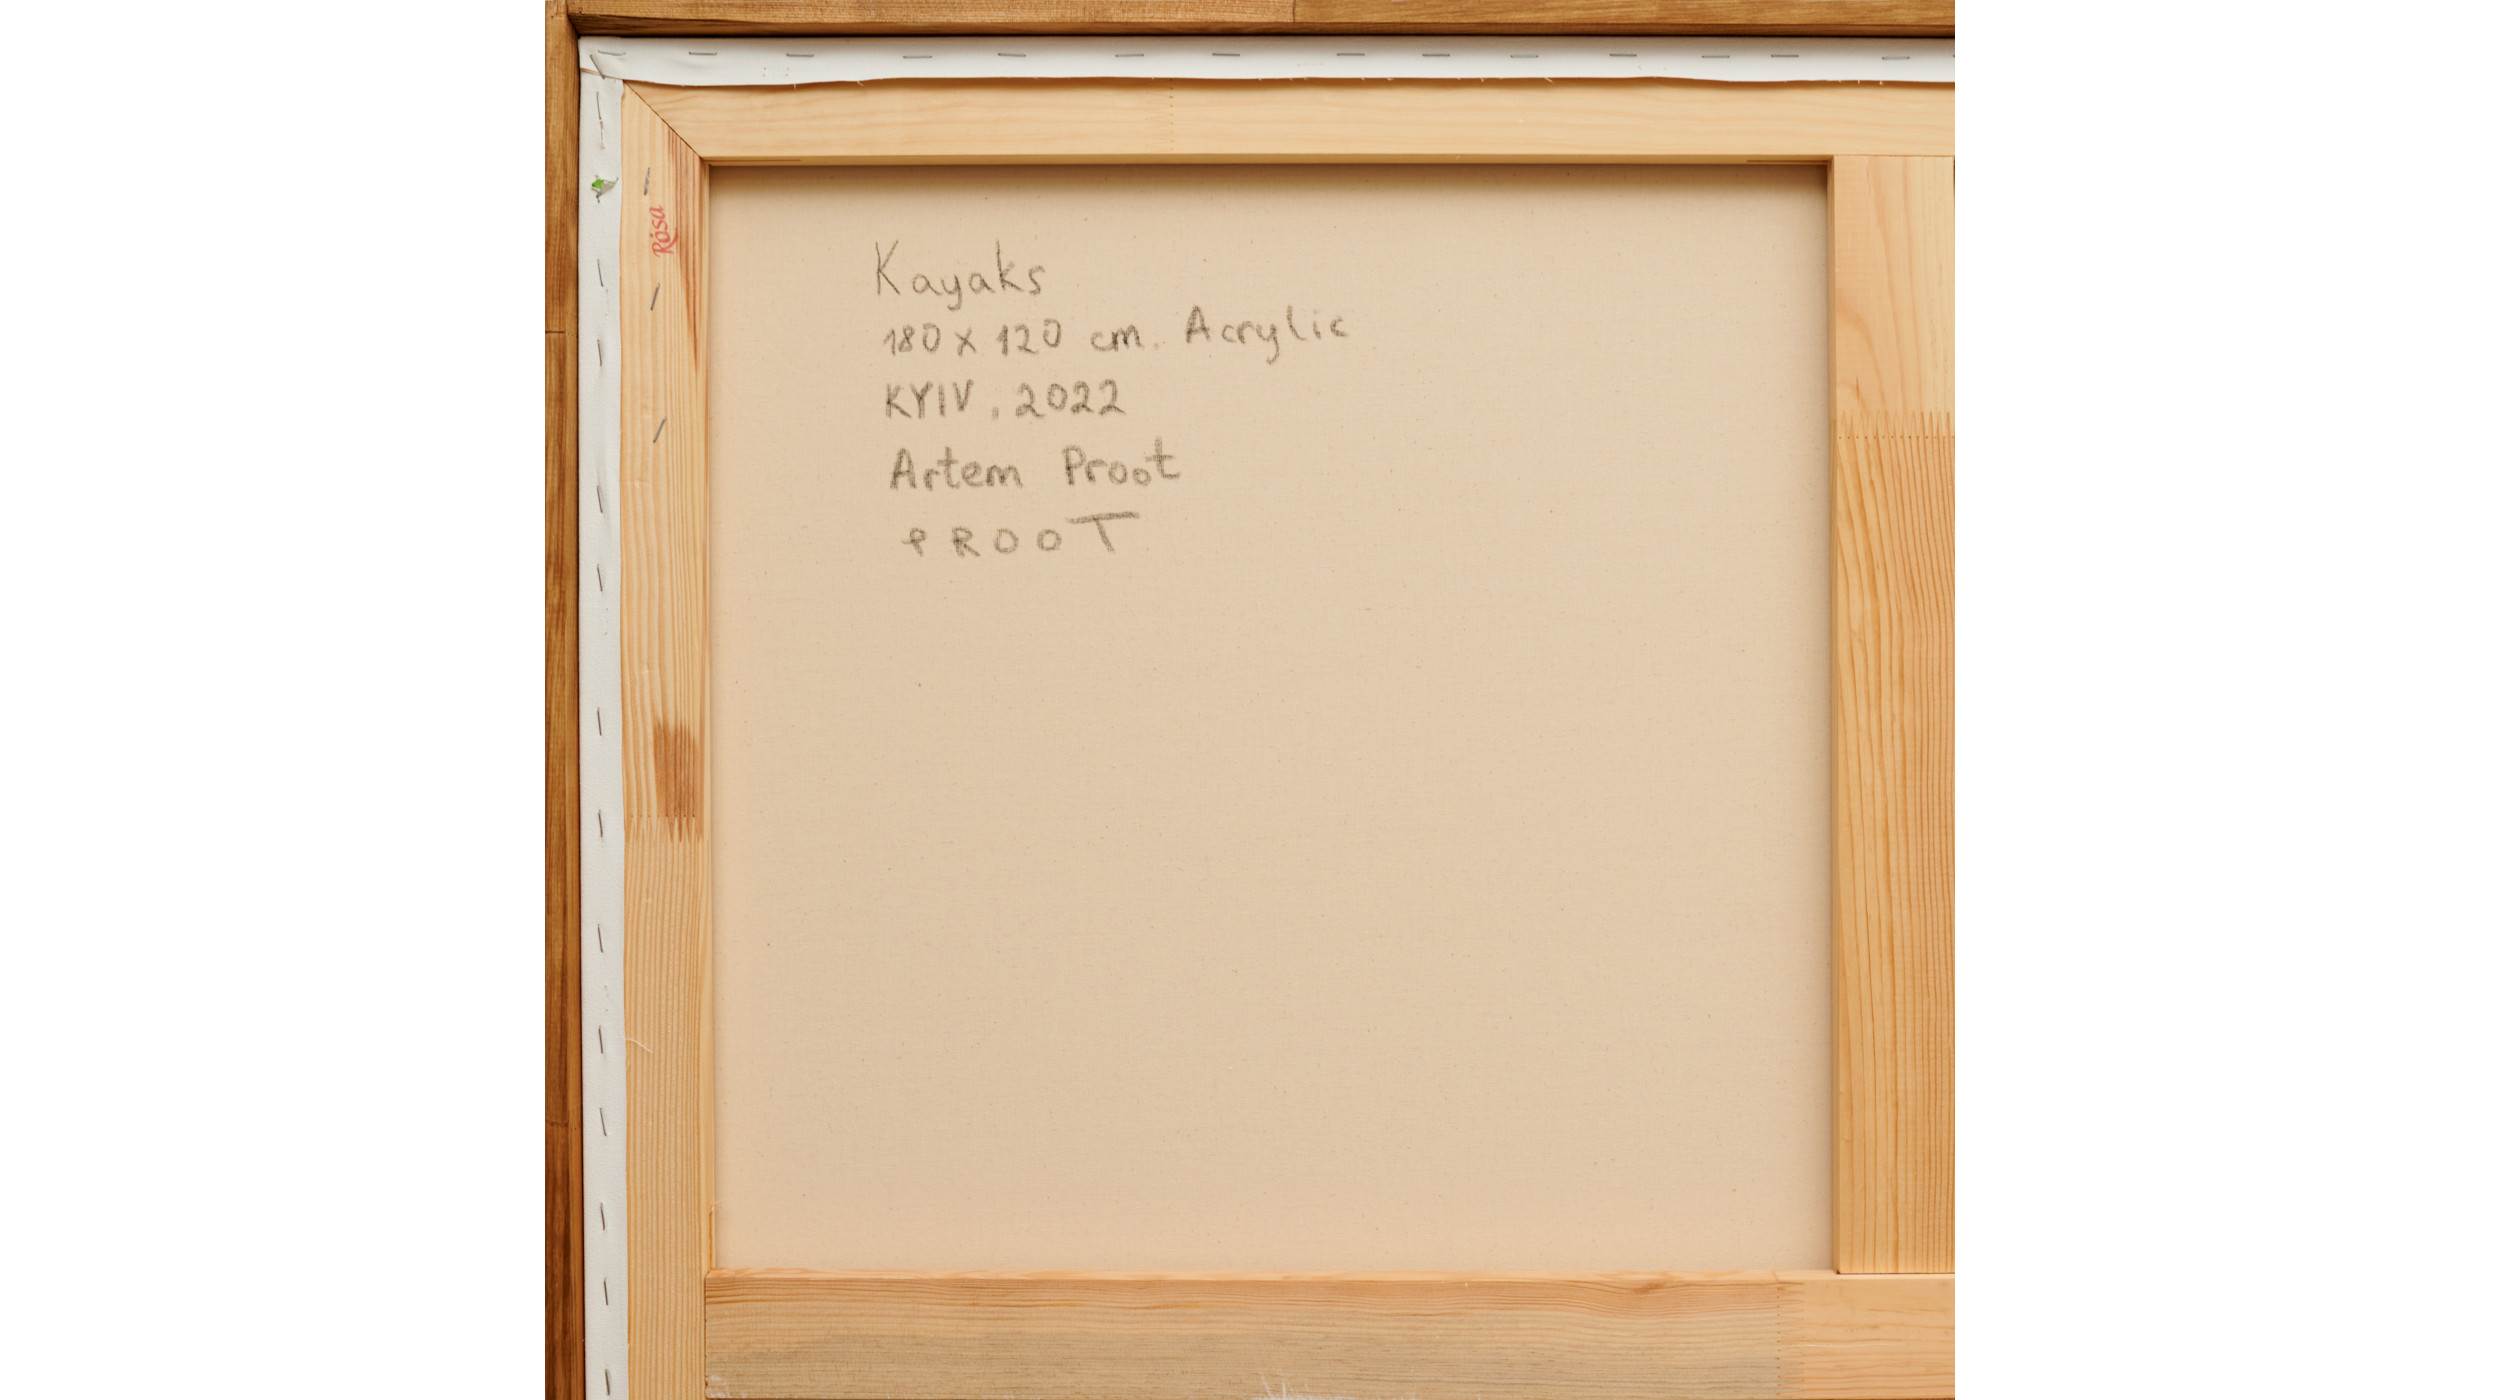 Rósa
Kayaks
180 x 120 cm. Acrylic
KYIV, 2022
Artem Proot
PROOT